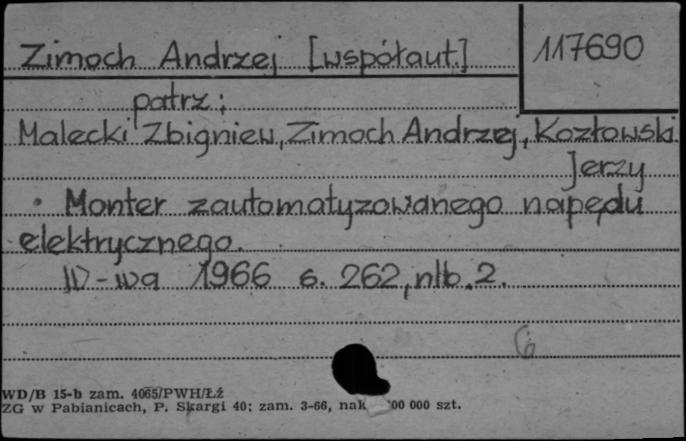 Zimoch Andrzej [współaut.] 117690
patrz:
Malecki Zbigniew, Zimoch Andrzej, Kozłowski
Jerzy
Monter zautomatyzowanego napędu
elektrycznego.
W-wa 1966 s. 262, nlb. 2.
6
WD/B 15-b zam. 4065/PWH/Łź
ZG w Pabianicach, P. Skargi 40; zam. 3-66, nak 00 000 szt.